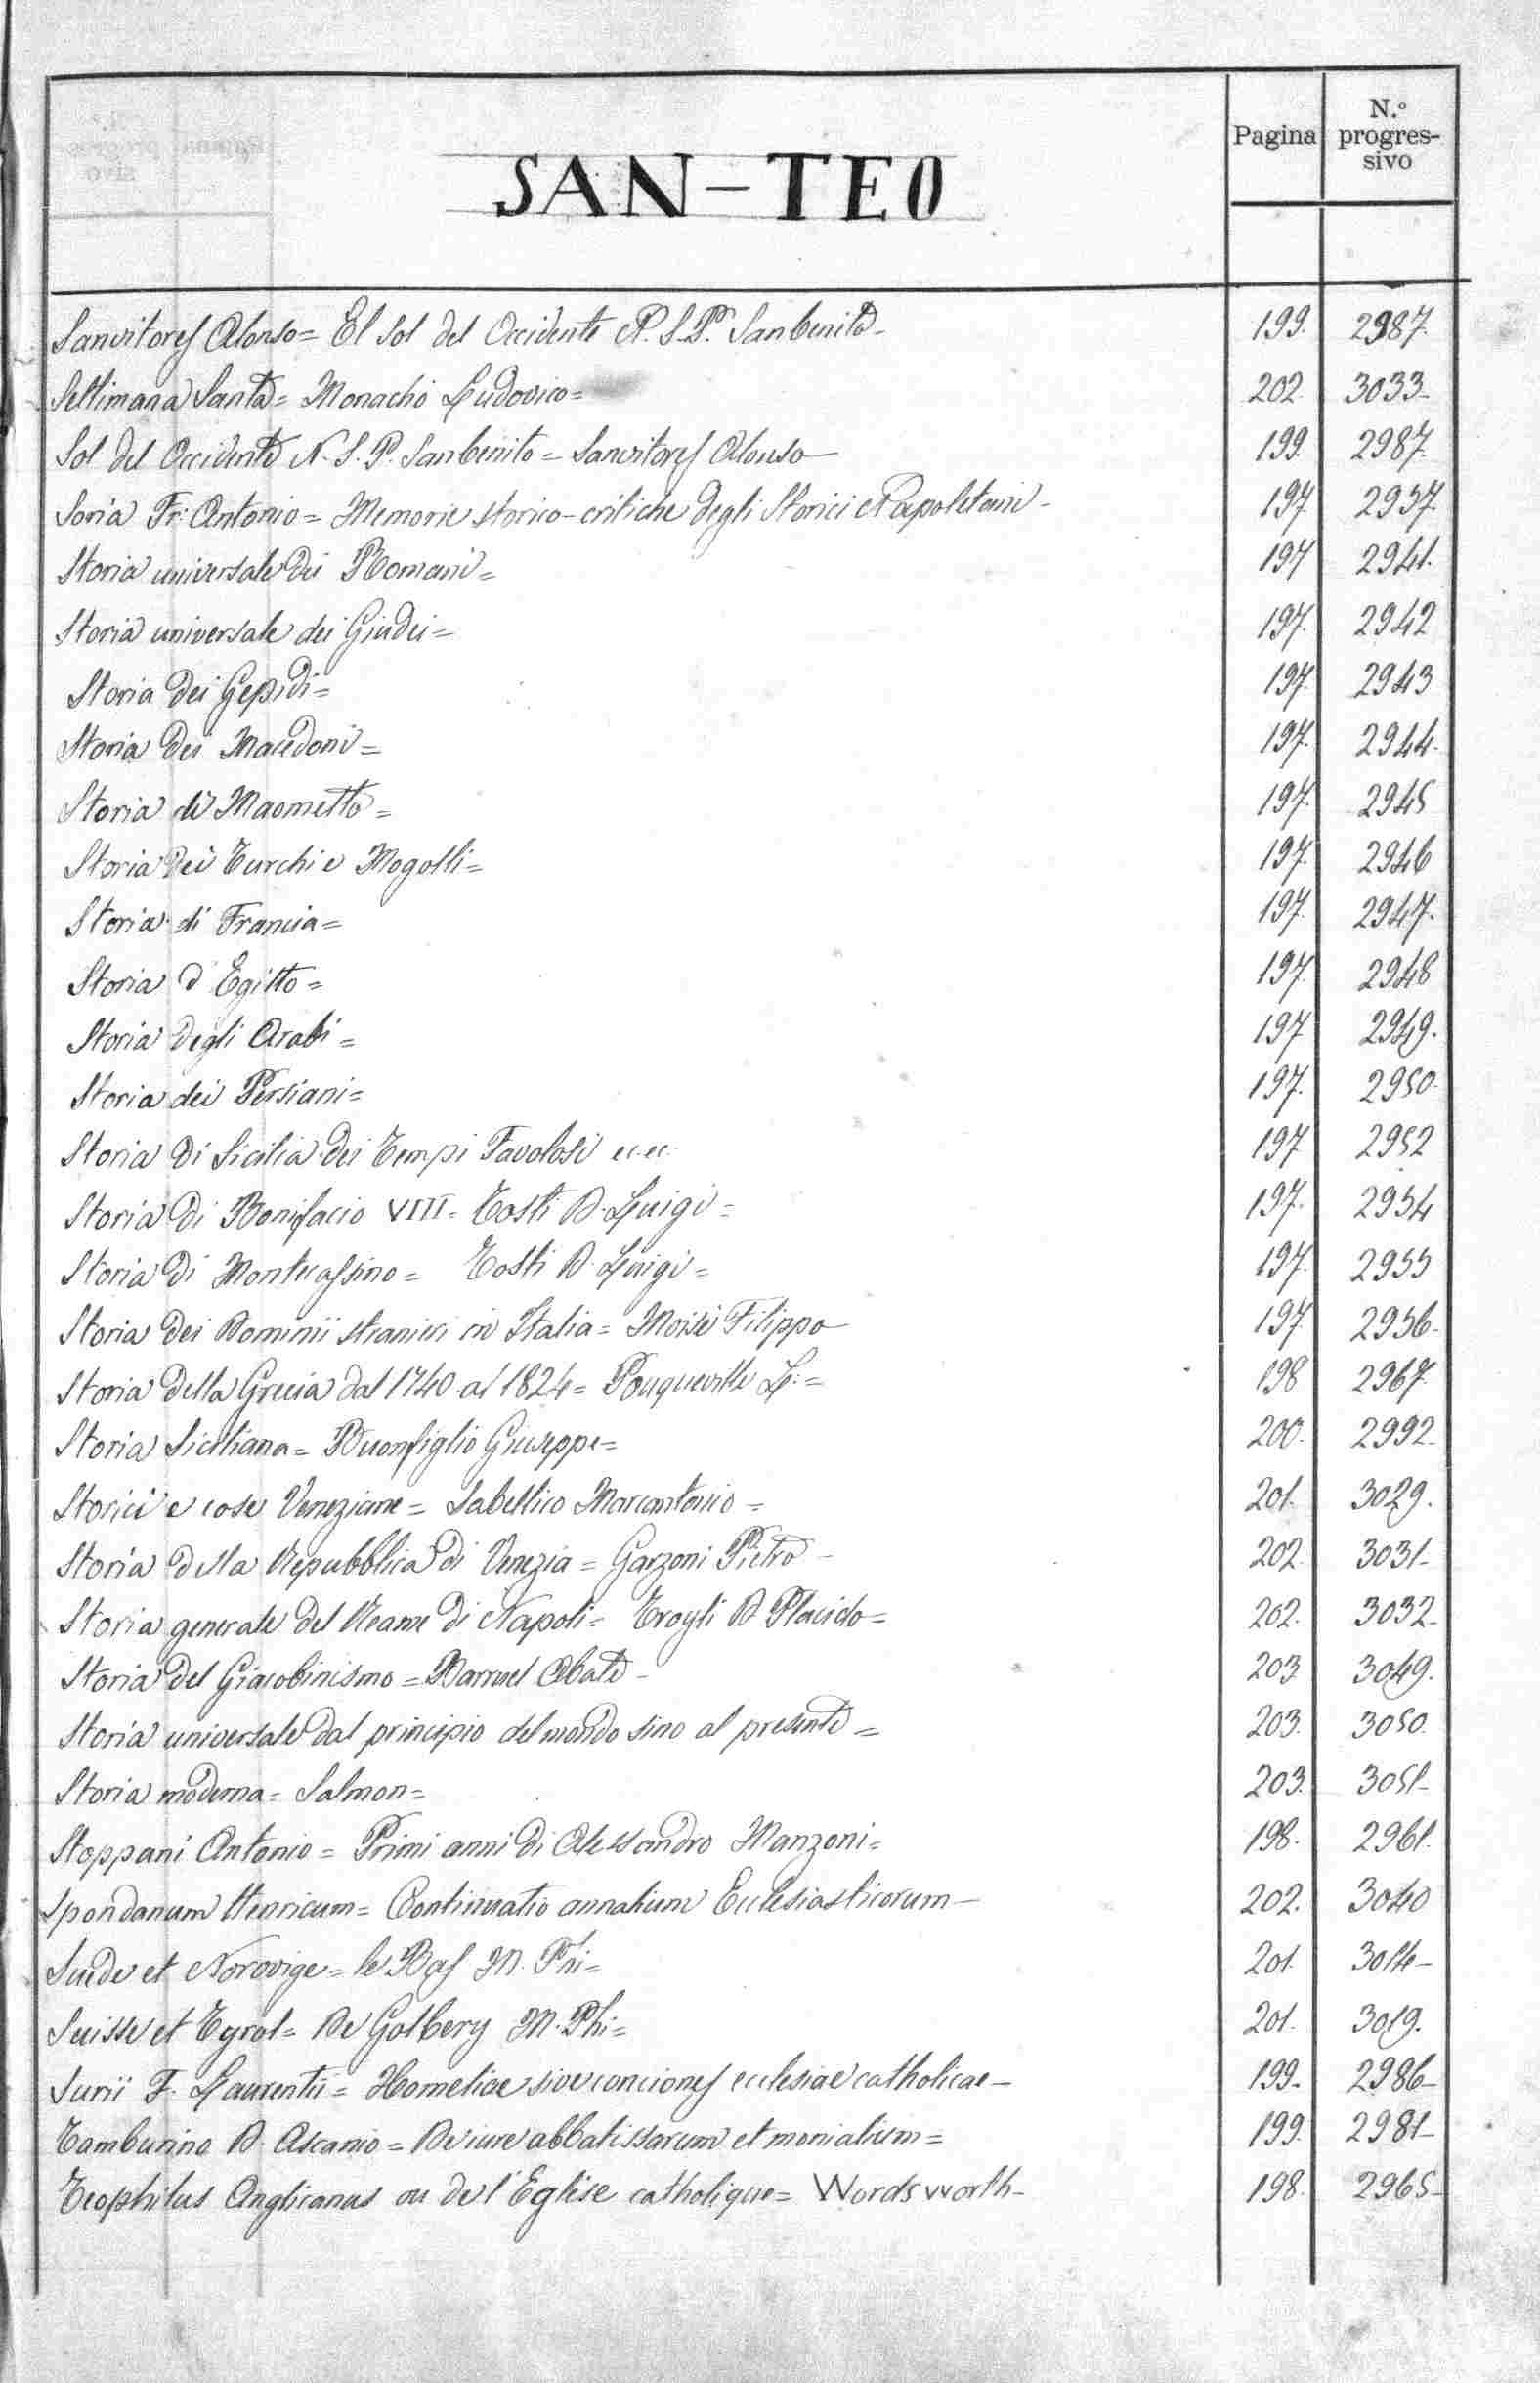 Pagina N.º progres-sivo
SAN-TEO
Sanvitores Alonso= El Sol del Occidente N. S. P. Sanbenito- 199. 2987.
Settimana Santa= Monachò Ludovico= 202. 3033-
Sol del Occidente N. S. P. Sanbenito= Sanvitores Alonso- 199. 2987.
Soria Fr: Antonio= Memorie storico-critiche degli Storici Napoletani- 197 2937.
Storia universale dei Romani= 197 2941.
Storia universale dei Giudei= 197. 2942
Storia dei Gepidi= 197. 2943
Storia dei Macedoni= 197. 2944.
Storia di Maometto= 197. 2945
Storia dei Turchi e Mogolli= 197. 2946
Storia di Francia= 197. 2947.
Storia d'Egitto= 197. 2948
Storia degli Arabi= 197 2949.
Storia dei Persiani= 197. 2950.
Storia di Sicilia dei Tempi Favolosi ec. ec. 197 2952
Storia di Bonifacio VIII= Tosti D. Luigi= 197. 2954
Storia di Montecassino= Tosti D. Luigi= 197. 2955
Storia dei Dominii stranieri in Italia= Moisè Filippo 197. 2956-
Storia della Grecia dal 1740 al 1824= Pouqueville L:= 198 2967.
Storia Siciliana= Buonfiglio Giuseppe= 200. 2992-
Storici e cose Veneziane= Sabellico Marcantonio= 201. 3029.
Storia della Repubblica di Venezia= Garzoni Pietro- 202. 3031-
Storia generale del Reame di Napoli= Troyli D Placido= 202. 3032-
Storia del Giacobinismo= Barruel Abate- 203 3049.
Storia universale dal principio del mondo sino al presente= 203. 3050.
Storia moderna= Salmon= 203. 3051-
Stoppani Antonio= Primi anni di Alessandro Manzoni= 198. 2961.
Spondanum Henricum= Continuatio annalium Ecclesiasticorum- 202. 3040
Suede et Norovige= le Bas M. Phi= 201.
Suisse et Tyrol= De Golbery M. Phi= 201. 3019.
Surii F. Laurentii= Homeliae sive conciones ecclesiae catholicae- 199. 2986-
Tamburino D. Ascanio= De iure abbatissarum et monialium= 199. 2981-
Teophilus Anglicanus ou de l'Eglise catholique= Wordsworth- 198. 2965-